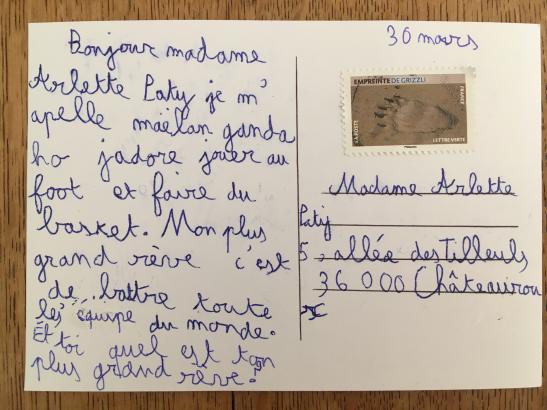 Bonjour madame
Arlette Laty je m'
apelle maëlan ganda
ho j'adore jouer au
foot et faire du
basket. Mon plus
grand rève c'est
de battre toute
les équipe du monde.
Et toi quel est ton
plus grand rève?
30 mars
EMPREINTE DE GRIZZLI
FRANCE
LA POSTE
LETTRE VERTE
Madame Arlette
Laty
5, allée des Tilleuls
36 000 Châteauroux